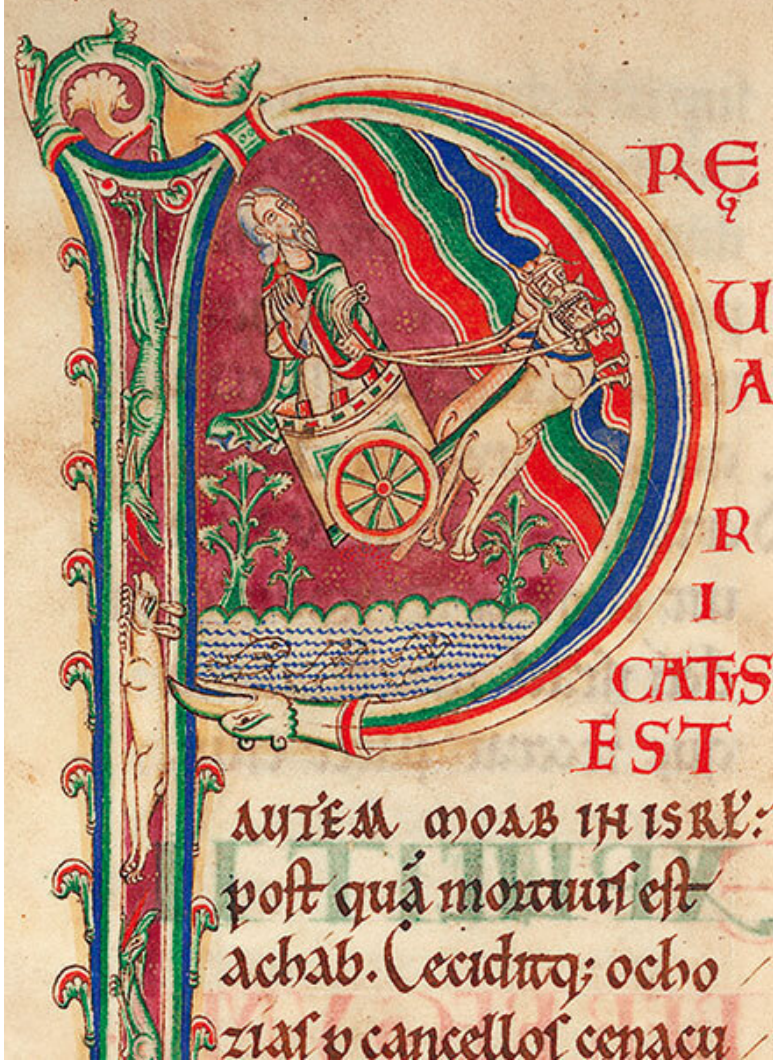 P
RĘ
U
A
R
I
CATUS
EST
AUTEM MOAB IN ISRŁ:
post quā mortuus est
achab. Ceciditq; ocho
zias p cancellos cenacu